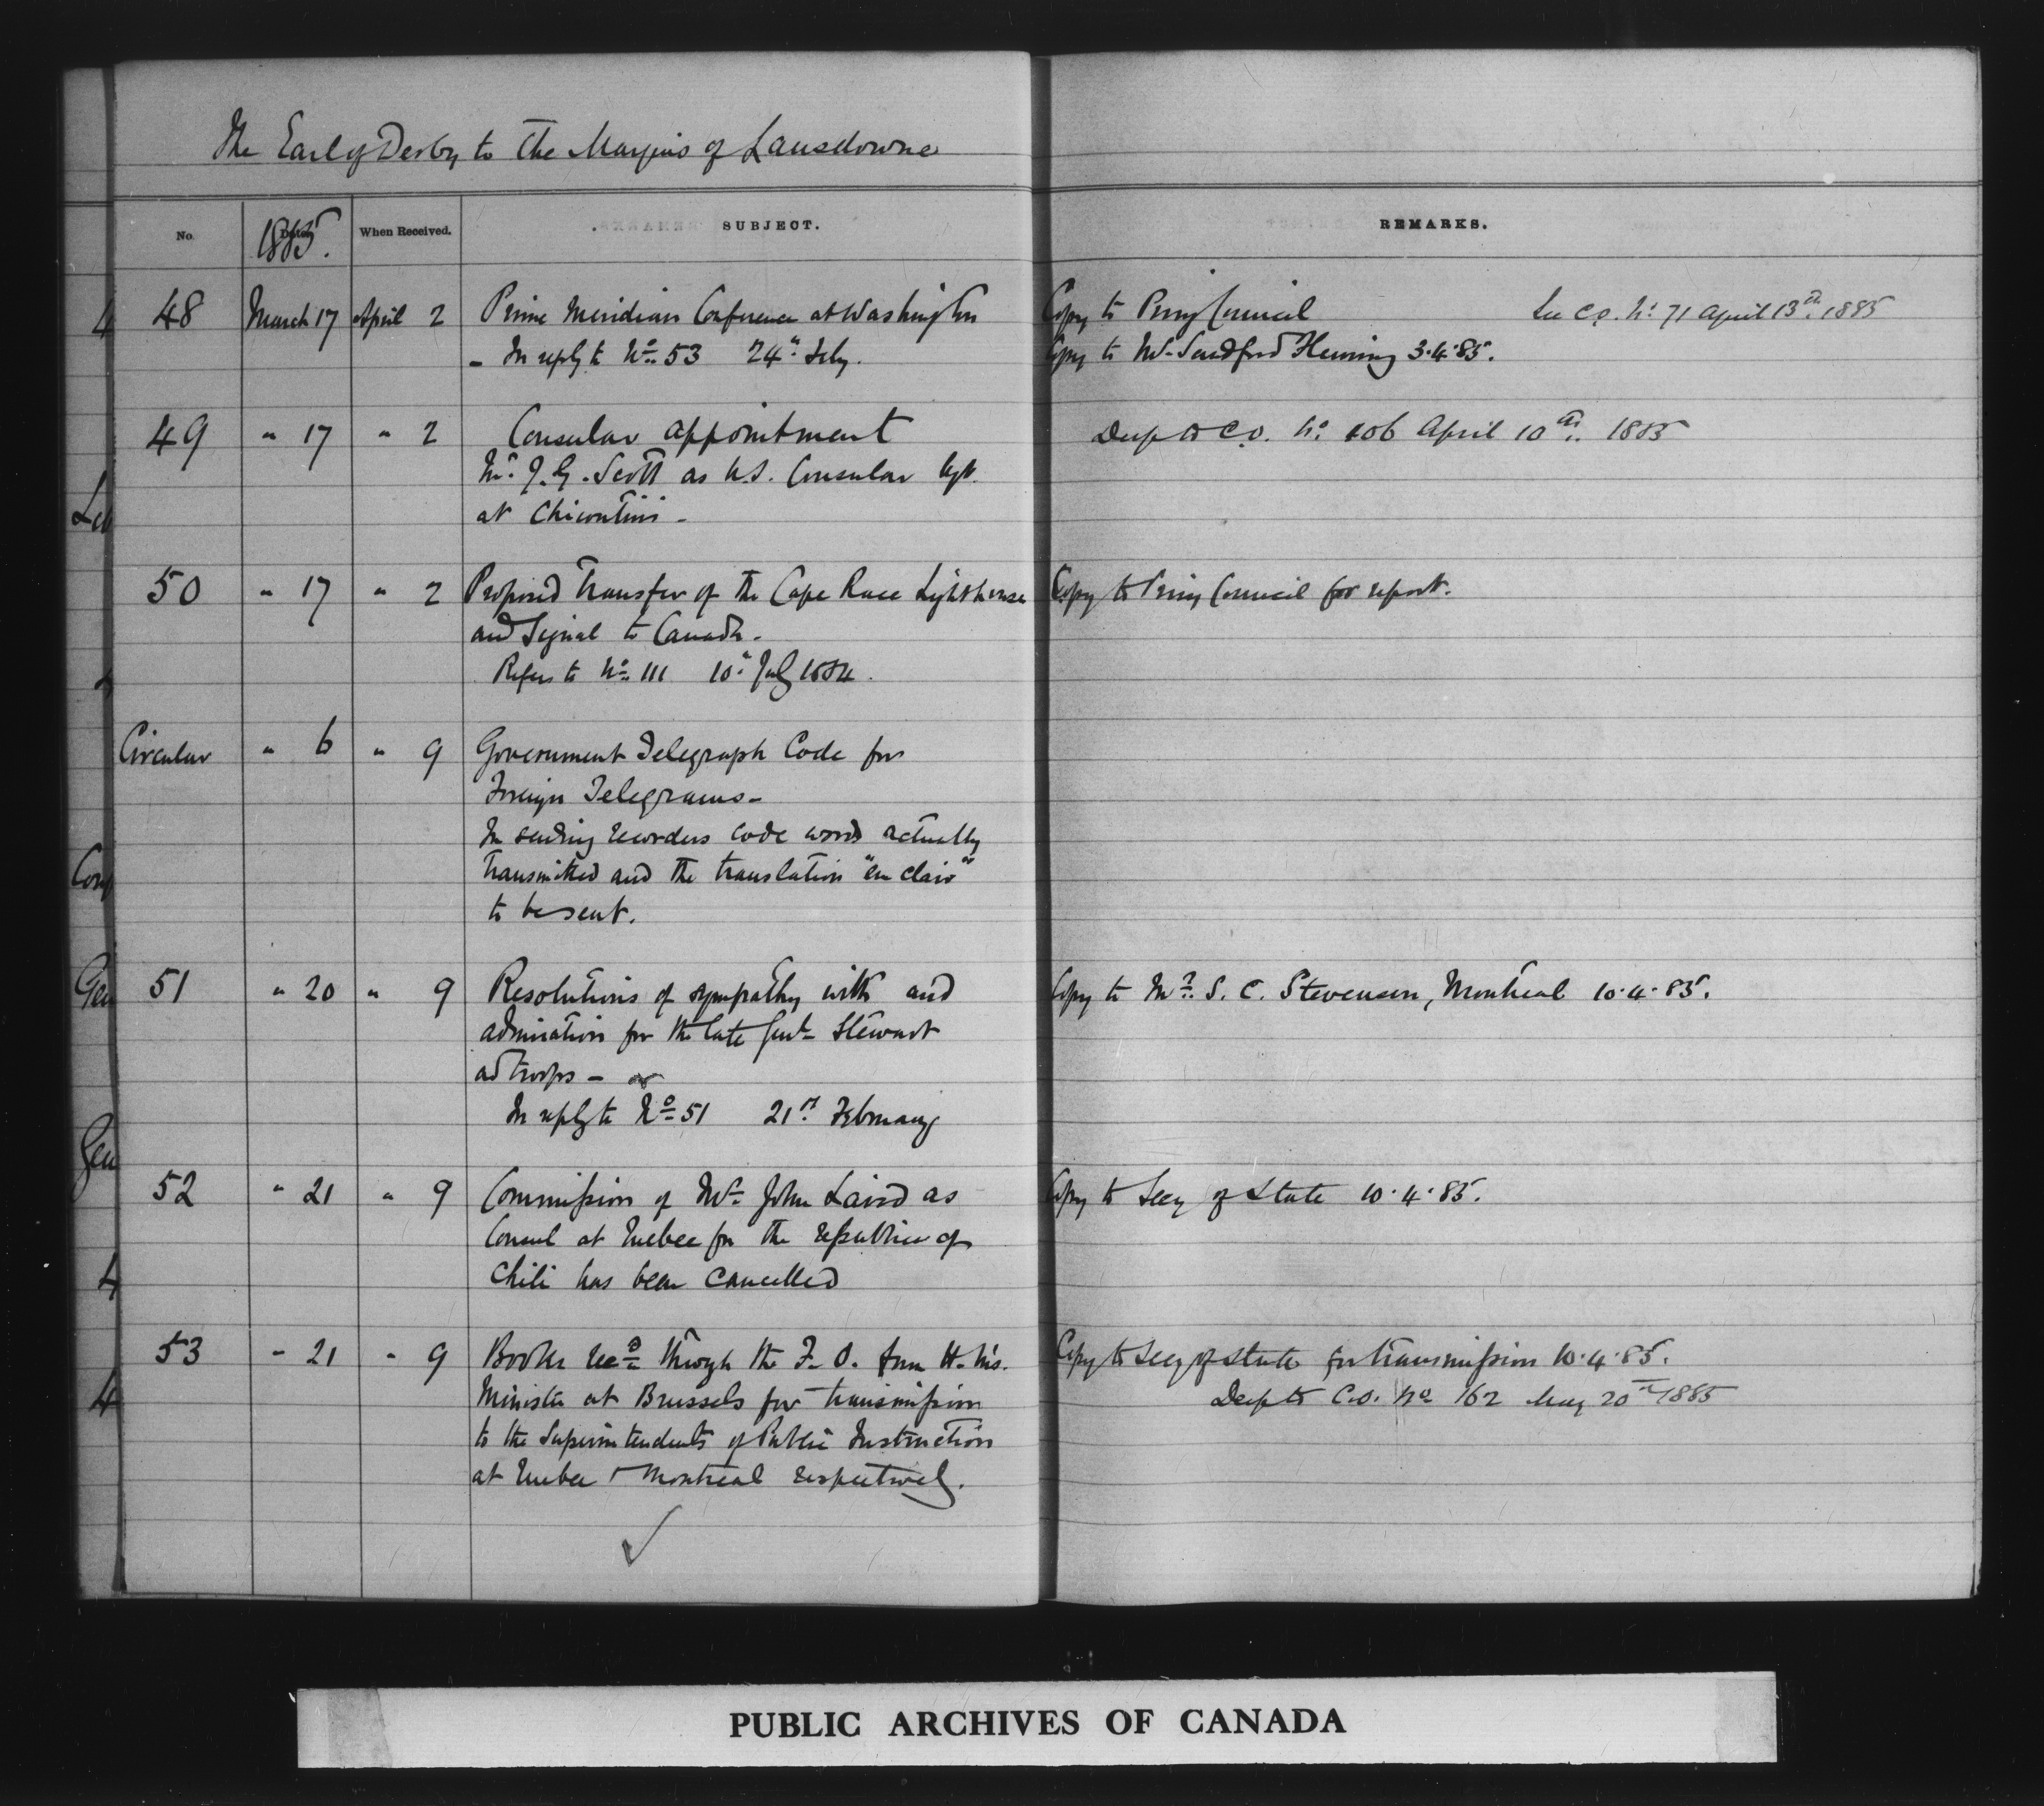 The Earl of Derby to The Marquis of Lansdowne
No. 1885. When Received. SUBJECT. REMARKS.
48 March 17 April 2 Prime Meridian Conference at Washington Copy to Privy Council See C.O. No. 71 April 13th. 1885
- In reply to No. 53 24th Feby. Copy to Mr. Sandford Fleming 3.4.85.
49 " 17 " 2 Consular appointment Desp to C.O. No. 106 April 10th. 1885
Mr. J. G. Scott as U.S. Consular Agt.
at Chicoutimi -
50 " 17 " 2 Proposed Transfer of the Cape Race Lighthouse Copy to Privy Council for report.
and Signal to Canada -
Refers to No. 111 10th July 1884.
Circular " 6 " 9 Government Telegraph Code for
Foreign Telegrams -
In sending code words actually
transmitted and the translation "en clair"
to be sent.
51 " 20 " 9 Resolutions of sympathy with and Copy to Mr. S. C. Stevenson, Montreal 10.4.85.
admiration for the late Genl. Stewart
ad troops -
In reply to No. 51 21st February
52 " 21 " 9 Commission of Mr. John Laird as Copy to Secy of State 10.4.85.
Consul at Quebec for the republic of
Chili has been cancelled
53 " 21 " 9 Books recd through the F.O. from H. M's. Copy to Secy of State for transmission 10.4.85.
Minister at Brussels for transmission Desp to C.O. No 162 May 20th 1885
to the Superintendents of Public Instruction
at Quebec & Montreal respectively.
PUBLIC ARCHIVES OF CANADA